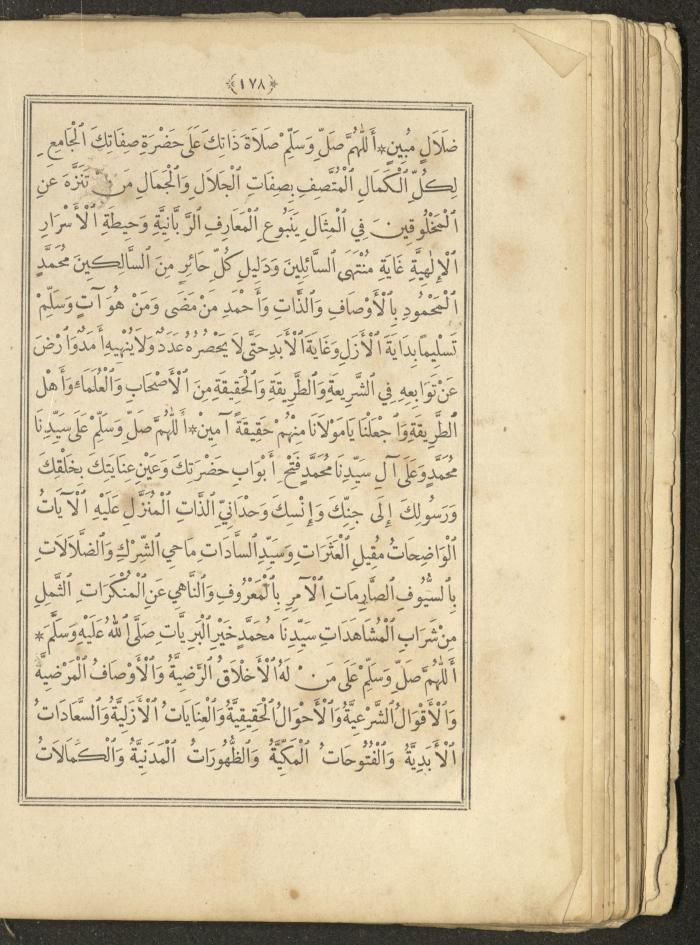 ﴿١٧٨﴾
ضَلَالٍ مُبِينٍ * أَللّٰهُمَّ صَلِّ وَسَلِّمْ صَلَاةَ ذَاتِكَ عَلَى حَضْرَةِ صِفَاتِكَ الْجَامِعِ
لِكُلِّ الْكَمَالِ الْمُتَّصِفِ بِصِفَاتِ الْجَلَالِ وَالْجَمَالِ مَنْ تَنَزَّهَ عَنِ
الْمَخْلُوقِينَ فِي الْمِثَالِ يَنْبُوعِ الْمَعَارِفِ الرَّبَّانِيَّةِ وَحِيطَةِ الْأَسْرَارِ
الْإِلٰهِيَّةِ غَايَةِ مُنْتَهَى السَّائِلِينَ وَدَلِيلِ كُلِّ حَائِرٍ مِنَ السَّالِكِينَ مُحَمَّدٍ
الْمَحْمُودِ بِالْأَوْصَافِ وَالذَّاتِ وَأَحْمَدِ مَنْ مَضَى وَمَنْ هُوَ آتٍ وَسَلِّمْ
تَسْلِيماً بِدَايَةَ الْأَزَلِ وَغَايَةَ الْأَبَدِ حَتَّى لَا يَحْصُرُهُ عَدَدٌ وَلَا يُنْهِيهِ أَمَدٌ وَارْضَ
عَنْ تَوَابِعِهِ فِي الشَّرِيعَةِ وَالطَّرِيقَةِ وَالْحَقِيقَةِ مِنَ الْأَصْحَابِ وَالْعُلَمَاءِ وَأَهْلِ
الطَّرِيقَةِ وَاجْعَلْنَا يَا مَوْلَانَا مِنْهُمْ حَقِيقَةً آمِينْ * أَللّٰهُمَّ صَلِّ وَسَلِّمْ عَلَى سَيِّدِنَا
مُحَمَّدٍ وَعَلَى آلِ سَيِّدِنَا مُحَمَّدٍ فَتْحِ أَبْوَابِ حَضْرَتِكَ وَعَيْنِ عِنَايَتِكَ بِخَلْقِكَ
وَرَسُولِكَ إِلَى جِنِّكَ وَإِنْسِكَ وَحْدَانِيِّ الذَّاتِ الْمُنَزَّلِ عَلَيْهِ الْآيَاتُ
الْوَاضِحَاتُ مُقِيلِ الْعَثَرَاتِ وَسَيِّدِ السَّادَاتِ مَاحِي الشِّرْكِ وَالضَّلَالَاتِ
بِالسُّيُوفِ الصَّارِمَاتِ الْآمِرِ بِالْمَعْرُوفِ وَالنَّاهِي عَنِ الْمُنْكَرَاتِ الثَّمِلِ
مِنْ شَرَابِ الْمُشَاهَدَاتِ سَيِّدِنَا مُحَمَّدٍ خَيْرِ الْبَرِيَّاتِ صَلَّى اللهُ عَلَيْهِ وَسَلَّمَ *
أَللّٰهُمَّ صَلِّ وَسَلِّمْ عَلَى مَنْ لَهُ الْأَخْلَاقُ الرَّضِيَّةُ وَالْأَوْصَافُ الْمَرْضِيَّةُ
وَالْأَقْوَالُ الشَّرْعِيَّةُ وَالْأَحْوَالُ الْحَقِيقِيَّةُ وَالْعِنَايَاتُ الْأَزَلِيَّةُ وَالسَّعَادَاتُ
الْأَبَدِيَّةُ وَالْفُتُوحَاتُ الْمَكِّيَّةُ وَالظُّهُورَاتُ الْمَدَنِيَّةُ وَالْكَمَالَاتُ